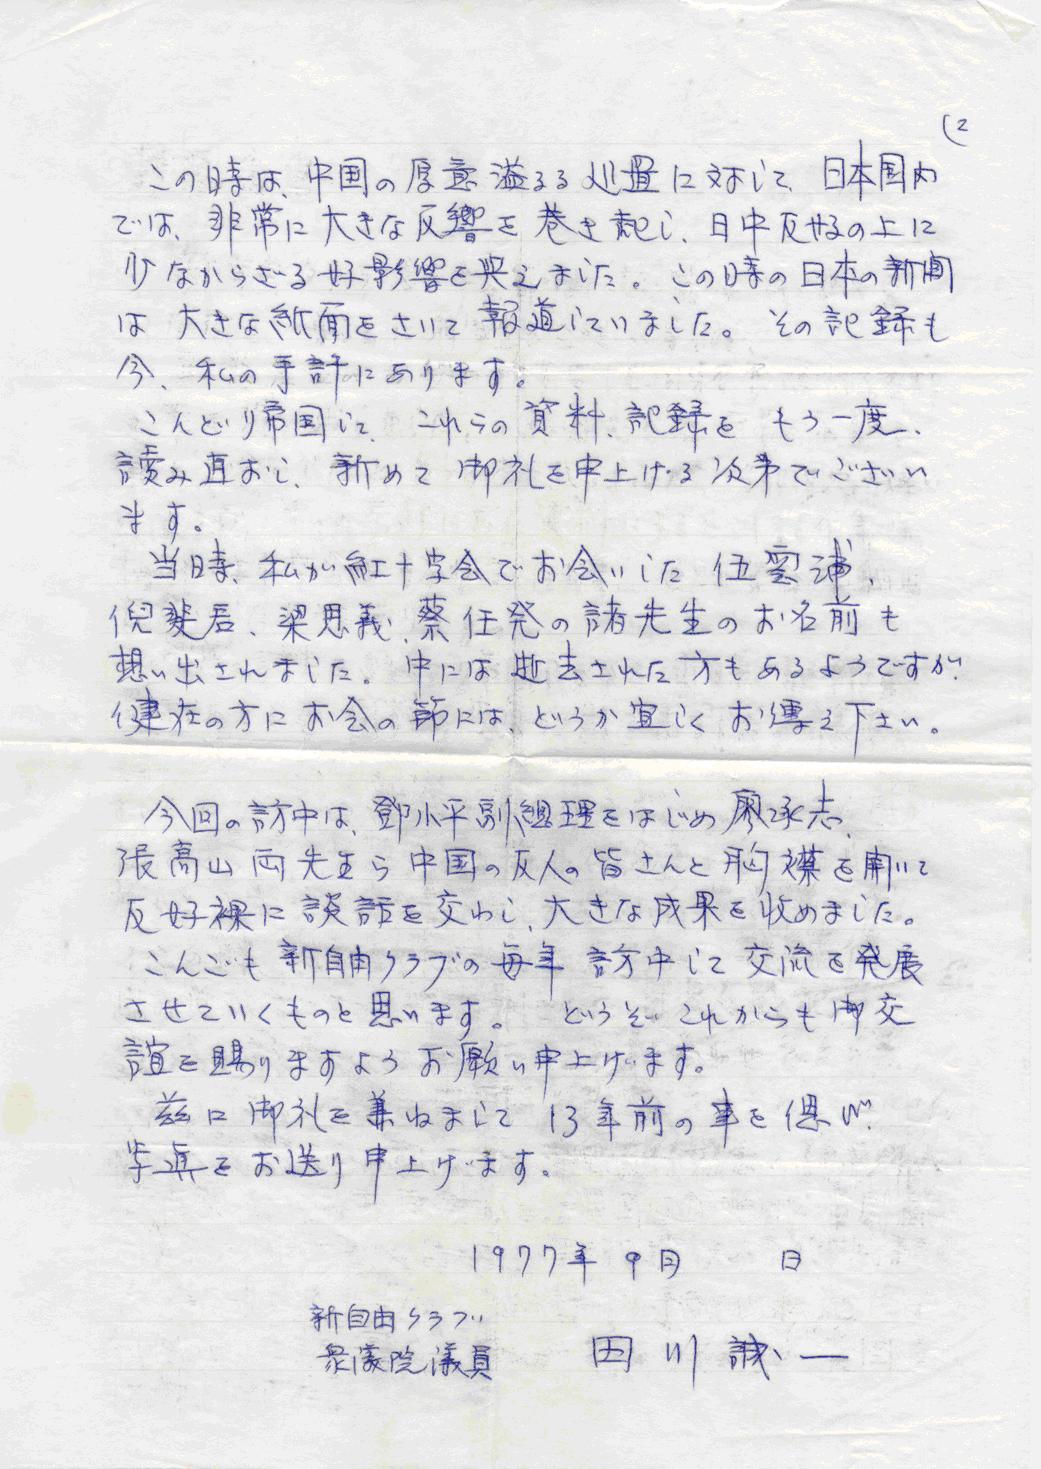 (2
この時は、中国の厚意溢るる処置に対して、日本国内
では、非常に大きな反響を巻き起し、日中友好の上に
少なからざる好影響を与えました。この時の日本の新聞
は大きな紙面をさいて報道していました。その記録も
今、私の手許にあります。
こんどり帰国して、これらの資料、記録をもう一度、
読み直おし、新めて御礼を申上げる次第でござい
ます。
当時、私が紅十字会でお会いした伍雲浦、
倪斐君、梁思義、蔡任発の諸先生のお名前も
想い出されました。中には逝去された方もあるようですが、
健在の方にお会の節には、どうか宜しくお伝え下さい。
今回の訪中は、鄧小平副総理をはじめ廖承志、
張高山両先生ら中国の友人の皆さんと胸襟を開いて
友好裸に談話を交わし、大きな成果を収めました。
こんごも新自由クラブの毎年訪中して交流を発展
させていくものと思います。どうぞ、これからも御交
誼を賜りますようお願い申上げます。
茲に御礼を兼ねまして13年前の事を偲び、
写真をお送り申上げます。
1977年9月 日
新自由クラブ
衆議院議員 田川誠一